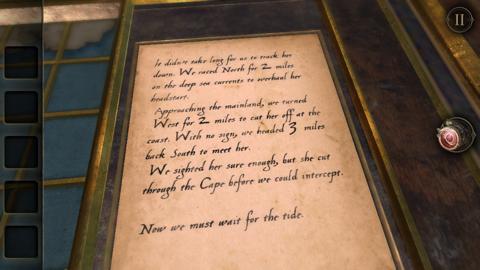 It didn't take long for us to track her
down. We raced North for 2 miles
on the deep sea currents to overhaul her
headstart.
Approaching the mainland, we turned
West for 2 miles to cut her off at the
coast. With no sign, we headed 3 miles
back South to meet her.
We sighted her sure enough, but she cut
through the Cape before we could intercept.
Now we must wait for the tide.